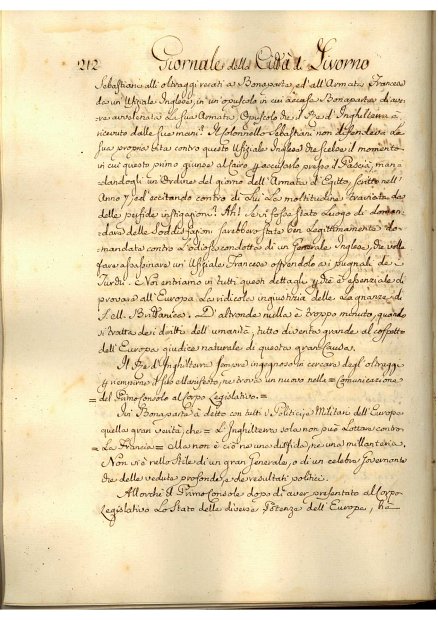 212 Giornale della Città di Livorno
Sebastiani all'oltraggi recati a Bonaparte, ed all'Armata Francese
da un'Ufiziale Inglese, in un'opuscolo in cui accusa Bonaparte di ave-
re avvelenata La sua Armata, Opuscolo che il Re d'Inghilterra à
ricevuto dalle sue mani? Il Colonnello Sebastiani non difendeva La
sua propria vita contro questo Ufiziale Inglese che scelse il momento
in cui questo primo giunse al Cairo per accusarlo presso il Pascià, man-
dandogli un'Ordine del giorno dell'Armata d'Egitto, scritto nell'
Anno ed eccitando contro di Lui La moltitudine traviata da
delle perfide instigazioni? Ah! Se vi fosse stato Luogo di doman-
dare delle soddisfazioni sarebbero state ben Legittimamente do-
mandate contro L'odiosa condotta di un Generale Inglese, che volle
fare assassinare un'Ufiziale Francese offrendolo ai pugnali de
Turchi. Noi entriamo in tutti questi dettagli perché è essenziale di
provare all'Europa La ridicola ingiustizia delle Lagnanze di
S. Britannica. D'altronde nulla è troppo minuto, quando
si tratta dei diritti dell'umanità, tutto diventa grande al cospetto
dell'Europa giudice naturale di questa gran Causa.
Il Re d'Inghilterra sempre ingegnoso in cercare degl'oltraggi
per riempirne il suo Manifesto, ne trova un nuovo nella = Comunicazione
= del Primo Console al Corpo Legislativo. =
Bonaparte à detto con tutti i Politici, e Militari dell'Europa
quella gran verità, che = L'Inghilterra sola non può Lottare contro
= La Francia = Ella non è ciò ne una disfida, ne una millanteria.
Non vi è nello Stile di un gran Generale, o di un celebre Governante
che delle vedute profonde, e de resultati politici.
Allorché il Primo Console dopo di aver presentato al Corpo
Legislativo Lo Stato delle diverse Potenze dell'Europa, ha